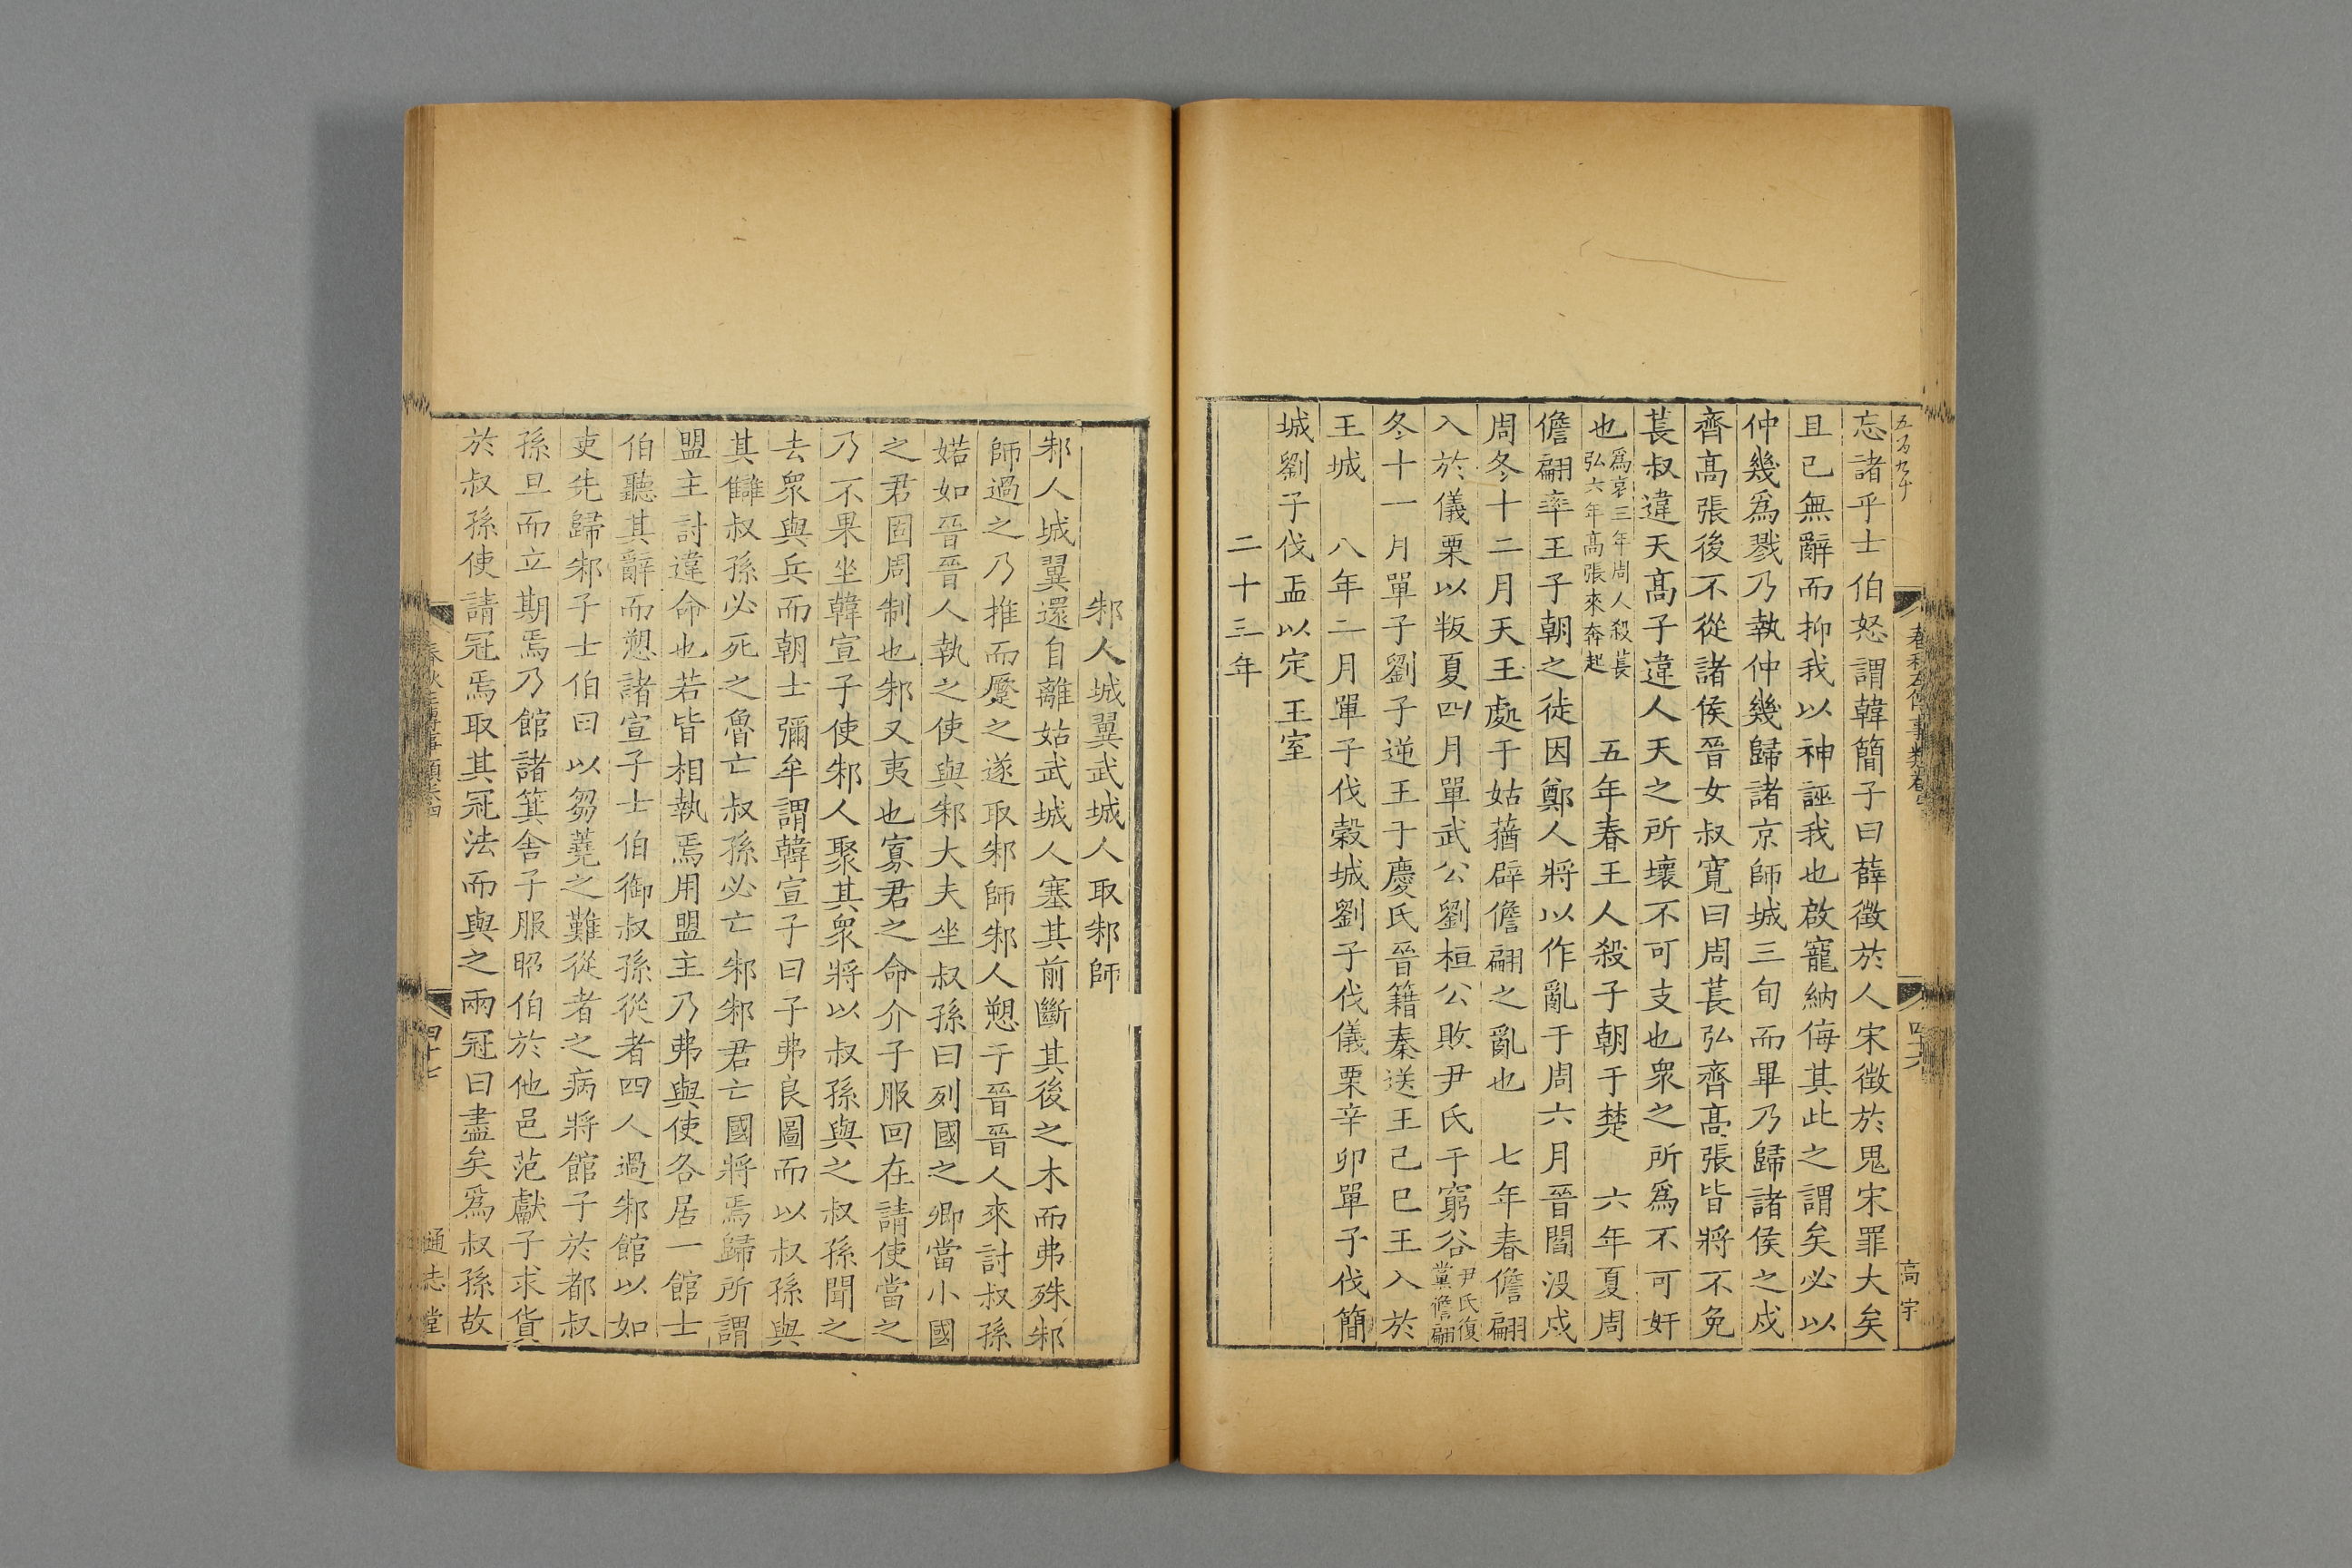 忘諸乎士伯怒謂韓簡子曰薛徵於人宋徵於鬼宋罪大矣
且已無辭而抑我以神誣我也啟寵納侮其此之謂矣必以
仲幾爲戮乃執仲幾歸諸京師城三旬而畢乃歸諸侯之戍
齊髙張後不從諸侯晉女叔寬曰周萇弘齊髙張皆將不免
萇叔違天髙子違人天之所壞不可支也衆之所爲不可奸
也爲哀三年周人殺萇弘六年髙張來奔起 五年春王人殺子朝于楚 六年夏周
儋翩率王子朝之徒因鄭人將以作亂于周六月晉閻沒戍
周冬十二月天王處于姑蕕辟儋翩之亂也 七年春儋翩
入於儀栗以叛夏四月單武公劉桓公敗尹氏于窮谷尹氏復黨儋翩
冬十一月單子劉子逆王于慶氏晉籍秦送王己巳王入於
王城 八年二月單子伐穀城劉子伐儀栗辛卯單子伐簡
城劉子伐盂以定王室
二十三年
春秋左傳事類卷
四十六
高宇
邾人城翼武城人取邾師
邾人城翼還自離姑武城人塞其前斷其後之木而弗殊邾
師過之乃推而蹷之遂取邾師邾人愬于晉晉人來討叔孫
婼如晉晉人執之使與邾大夫坐叔孫曰列國之卿當小國
之君固周制也邾又夷也寡君之命介子服回在請使當之
乃不果坐韓宣子使邾人聚其衆將以叔孫與之叔孫聞之
去衆與兵而朝士彌牟謂韓宣子曰子弗良圖而以叔孫與
其讎叔孫必死之魯亡叔孫必亡邾邾君亡國將焉歸所謂
盟主討違命也若皆相執焉用盟主乃弗與使各居一館士
伯聽其辭而愬諸宣子士伯御叔孫從者四人過邾館以如
吏先歸邾子士伯曰以芻蕘之難從者之病將館子於都叔
孫旦而立期焉乃館諸箕舍子服昭伯於他邑范獻子求貨
於叔孫使請冠焉取其冠法而與之兩冠曰盡矣爲叔孫故
四十七
通志堂